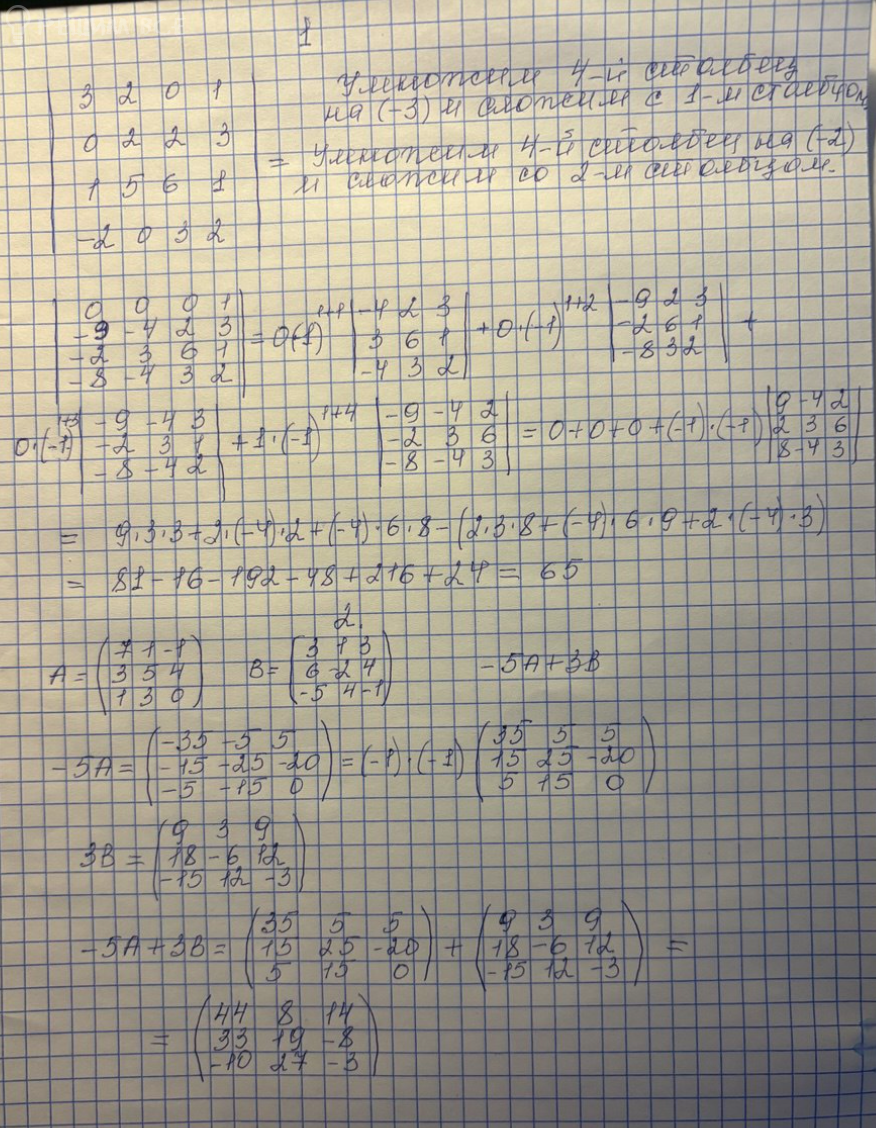 1
| 3 2 0 1 |
| 0 2 2 3 |
| 1 5 6 1 |
| -2 0 3 2 | =
Умножим 4-й столбец
на (-3) и сложим с 1-м столбцом,
Умножим 4-й столбец на (-2)
и сложим со 2-м столбцом.
| 0 0 0 1 |
| -9 -4 2 3 |
| -2 3 6 1 |
| -8 -4 3 2 | = 0(-1)^{1+1} | -4 2 3 |
| 3 6 1 |
| -4 3 2 | + 0·(-1)^{1+2} | -9 2 3 |
| -2 6 1 |
| -8 3 2 | +
0·(-1)^{1+3} | -9 -4 3 |
| -2 3 1 |
| -8 -4 2 | + 1·(-1)^{1+4} | -9 -4 2 |
| -2 3 6 |
| -8 -4 3 | = 0+0+0+(-1)·(-1) | 9 -4 2 |
| 2 3 6 |
| 8 -4 3 |
= 9·3·3+2·(-4)·2+(-4)·6·8-(2·3·8+(-4)·6·9+2·(-4)·3)
= 81-16-192-48+216+24= 65
2.
A = ( 7 1 -1 )
( 3 5 4 )
( 1 3 0 )
B = ( 3 1 3 )
( 6 -2 4 )
( -5 4 -1 )
-5A+3B
-5A = ( -35 -5 5 )
( -15 -25 -20 )
( -5 -15 0 ) = (-1)·(-1) ( 35 5 5 )
( 15 25 -20 )
( 5 15 0 )
3B = ( 9 3 9 )
( 18 -6 12 )
( -15 12 -3 )
-5A+3B = ( 35 5 5 )
( 15 25 -20 )
( 5 15 0 ) + ( 9 3 9 )
( 18 -6 12 )
( -15 12 -3 ) =
= ( 44 8 14 )
( 33 19 -8 )
( -10 27 -3 )